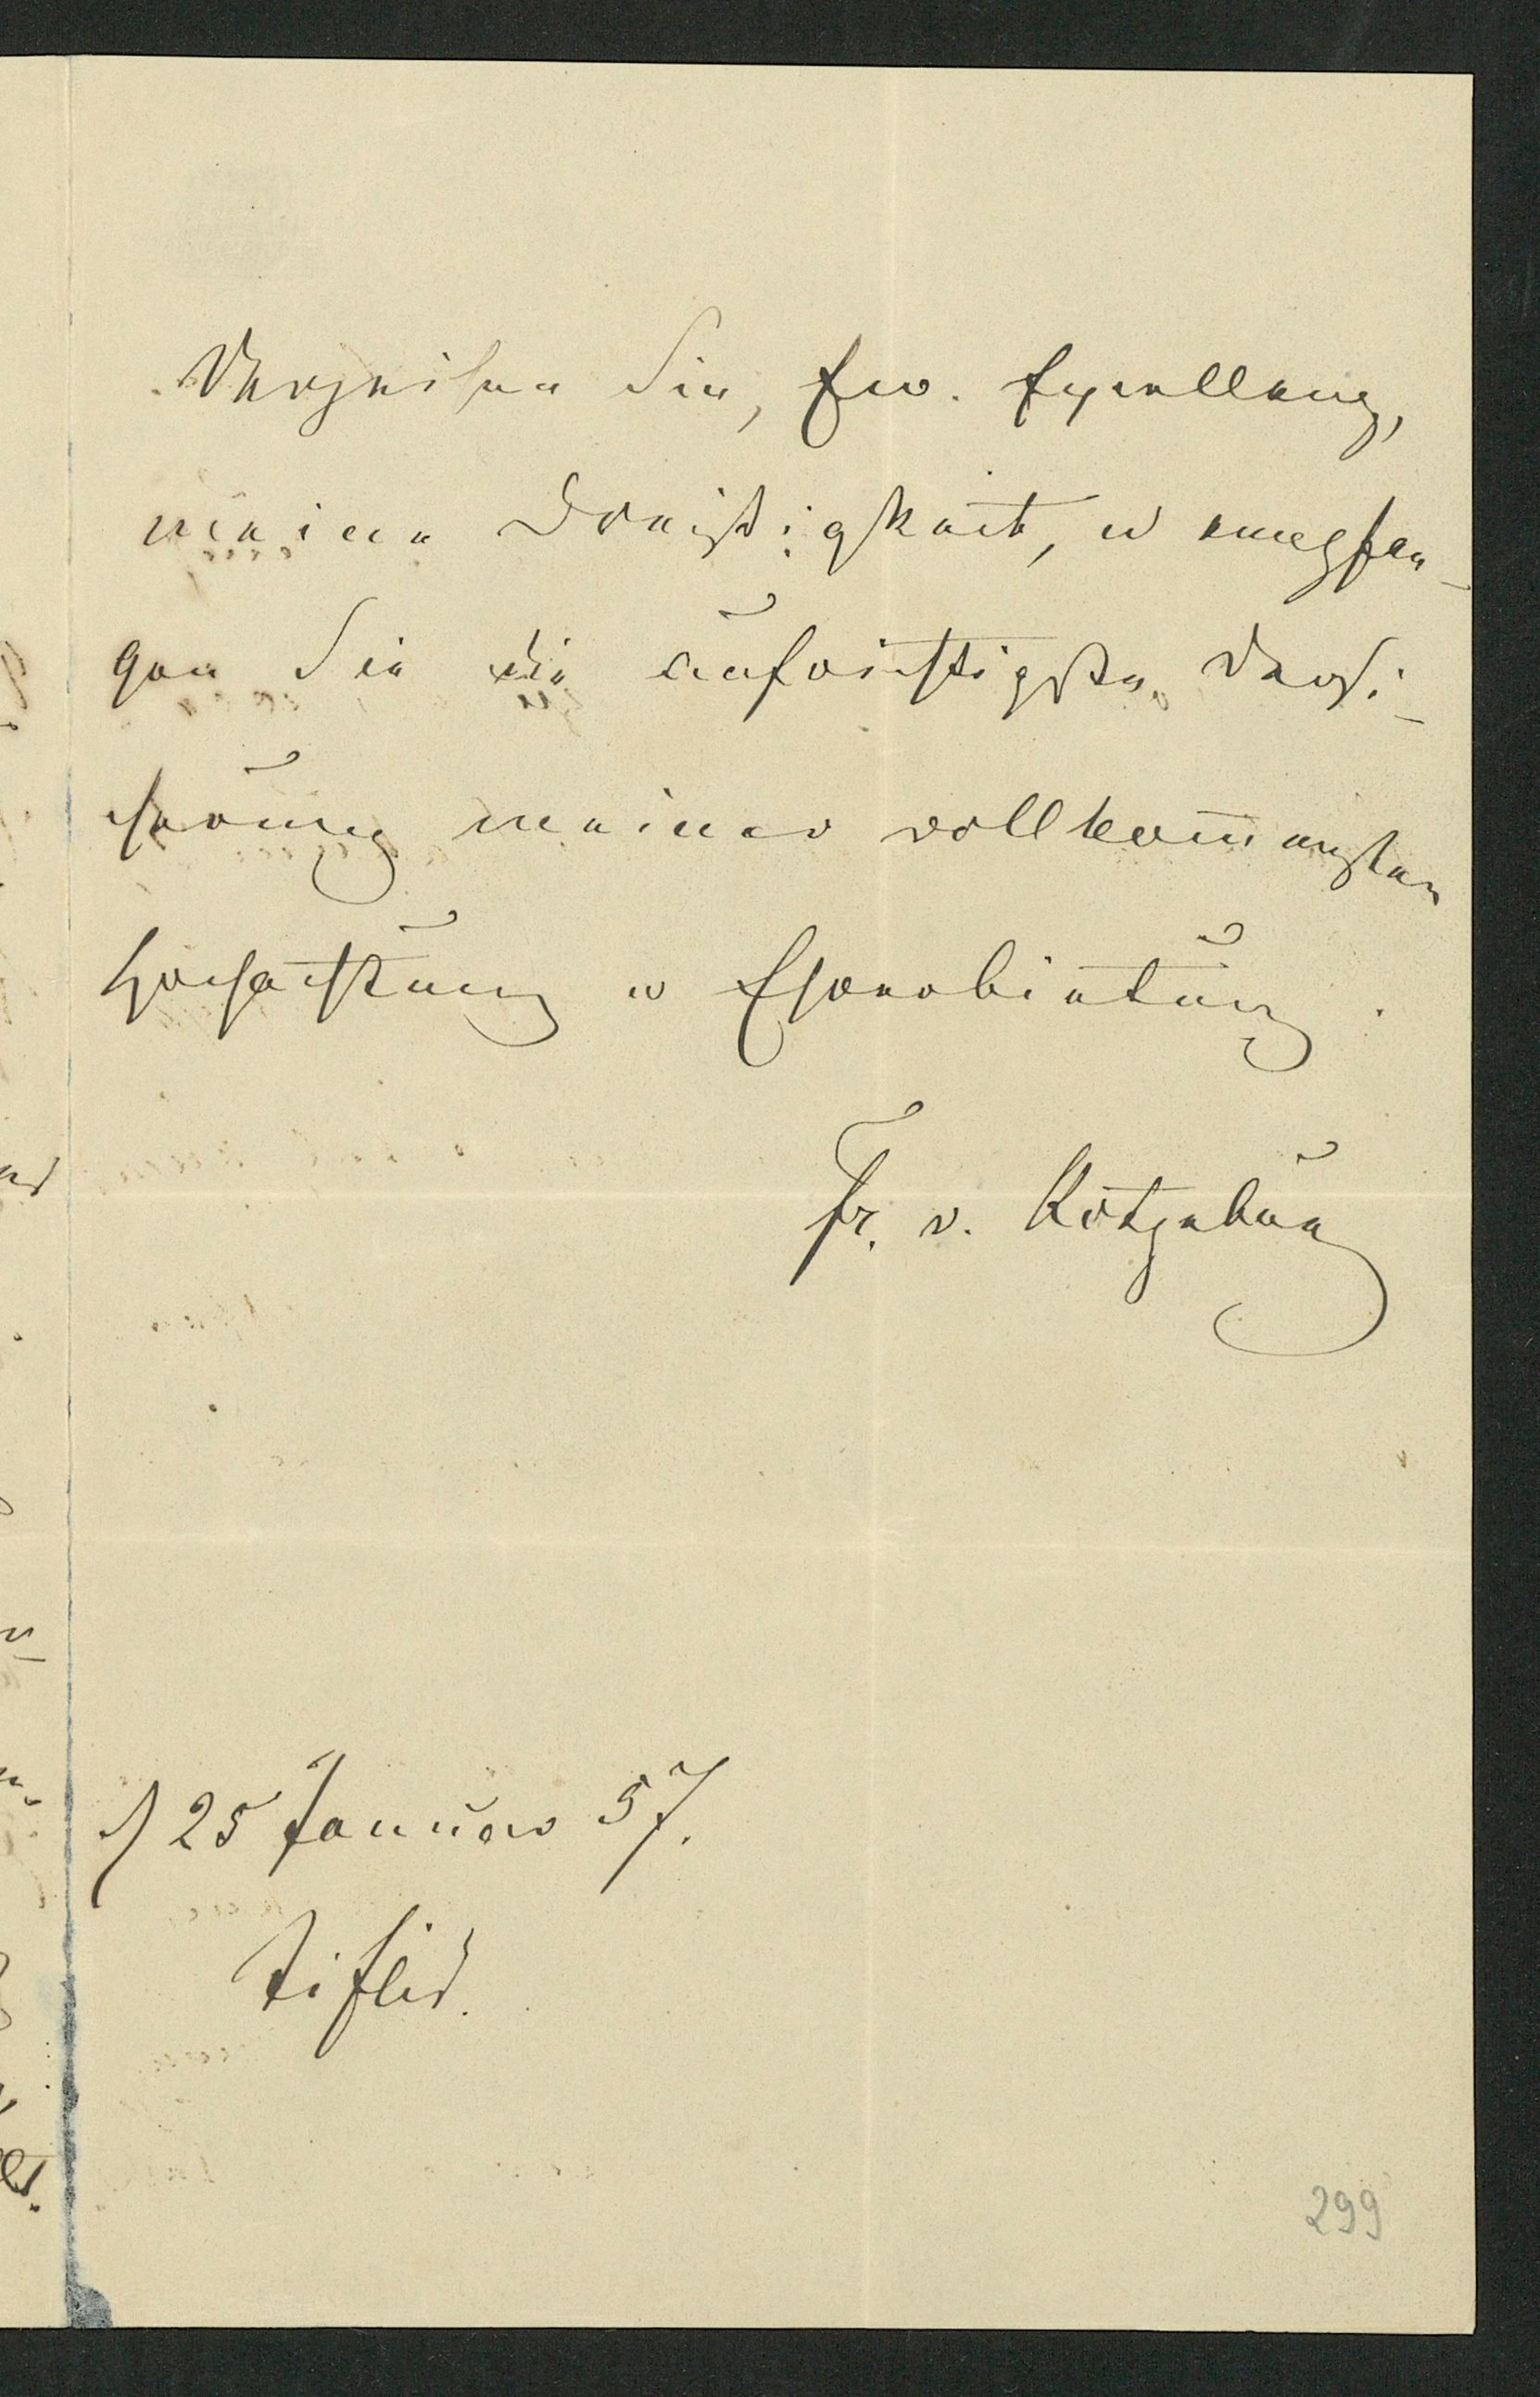 Verzeihen Sie, Ew. Excellenz,
meine Dreistigkeit, u empfan-
gen Sie die aufrichtigste Versi-
cherung meiner vollkom̅ensten
Hochachtung u Ehrerbietung.
Fr. v. Kotzebue
25 Januar 57.
Tiflis.
299